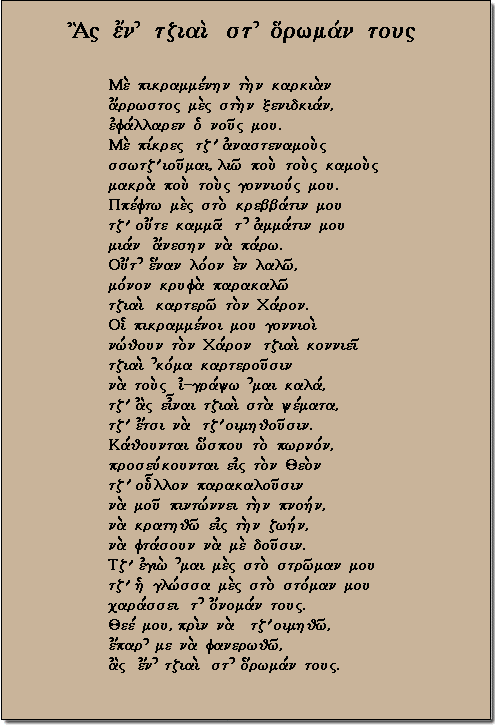 Ἂς ἔν᾿ τζιαὶ στ᾿ ὅρωμάν τους
Μὲ πικραμμένην τὴν καρκιὰν
ἄρρωστος μὲς στὴν ξενιδκιάν,
ἐφάλλαρεν ὁ νοῦς μου.
Μὲ πίκρες τζ᾿ ἀναστεναμοὺς
σσωτζ᾿ιοῦμαι, λιῶ ποὺ τοὺς καμοὺς
μακρὰ ποὺ τοὺς γοννιούς μου.
Ππέφτω μὲς στὸ κρεββάτιν μου
τζ᾿ οὔτε καμμᾶ τ᾿ ἀμμάτιν μου
μιάν ἄνεσην νὰ πάρω.
Οὔτ᾿ ἕναν λόον ἐν λαλῶ,
μόνον κρυφὰ παρακαλῶ
τζιαὶ καρτερῶ τὸν Χάρον.
Οἱ πικραμμένοι μου γοννιοὶ
νώθουν τὸν Χάρον τζιαὶ κοννιεῖ
τζιαὶ ᾿κόμα καρτεροῦσιν
νὰ τοὺς ἰ-γράψω ᾿μαι καλά,
τζ᾿ ἂς εἶναι τζιαὶ στὰ ψέματα,
τζ᾿ ἔτσι νὰ τζ᾿οιμηθοῦσιν.
Κάθουνται ὥσπου τὸ πωρνόν,
προσεύκουνται εἰς τὸν Θεὸν
τζ᾿ οὗλλον παρακαλοῦσιν
νὰ μοῦ πιντώννει τὴν πνοήν,
νὰ κρατηθῶ εἰς τὴν ζωήν,
νὰ φτάσουν νὰ μὲ δοῦσιν.
Τζ᾿ ἐγιὼ ᾿μαι μὲς στὸ στρῶμαν μου
τζ᾿ ἡ γλώσσα μὲς στὸ στόμαν μου
χαράσσει τ᾿ ὄνομάν τους.
Θεέ μου, πρὶν νὰ τζ᾿οιμηθῶ,
ἔπαρ᾿ με νὰ φανερωθῶ,
ἂς ἔν᾿ τζιαὶ στ᾿ ὅρωμάν τους.